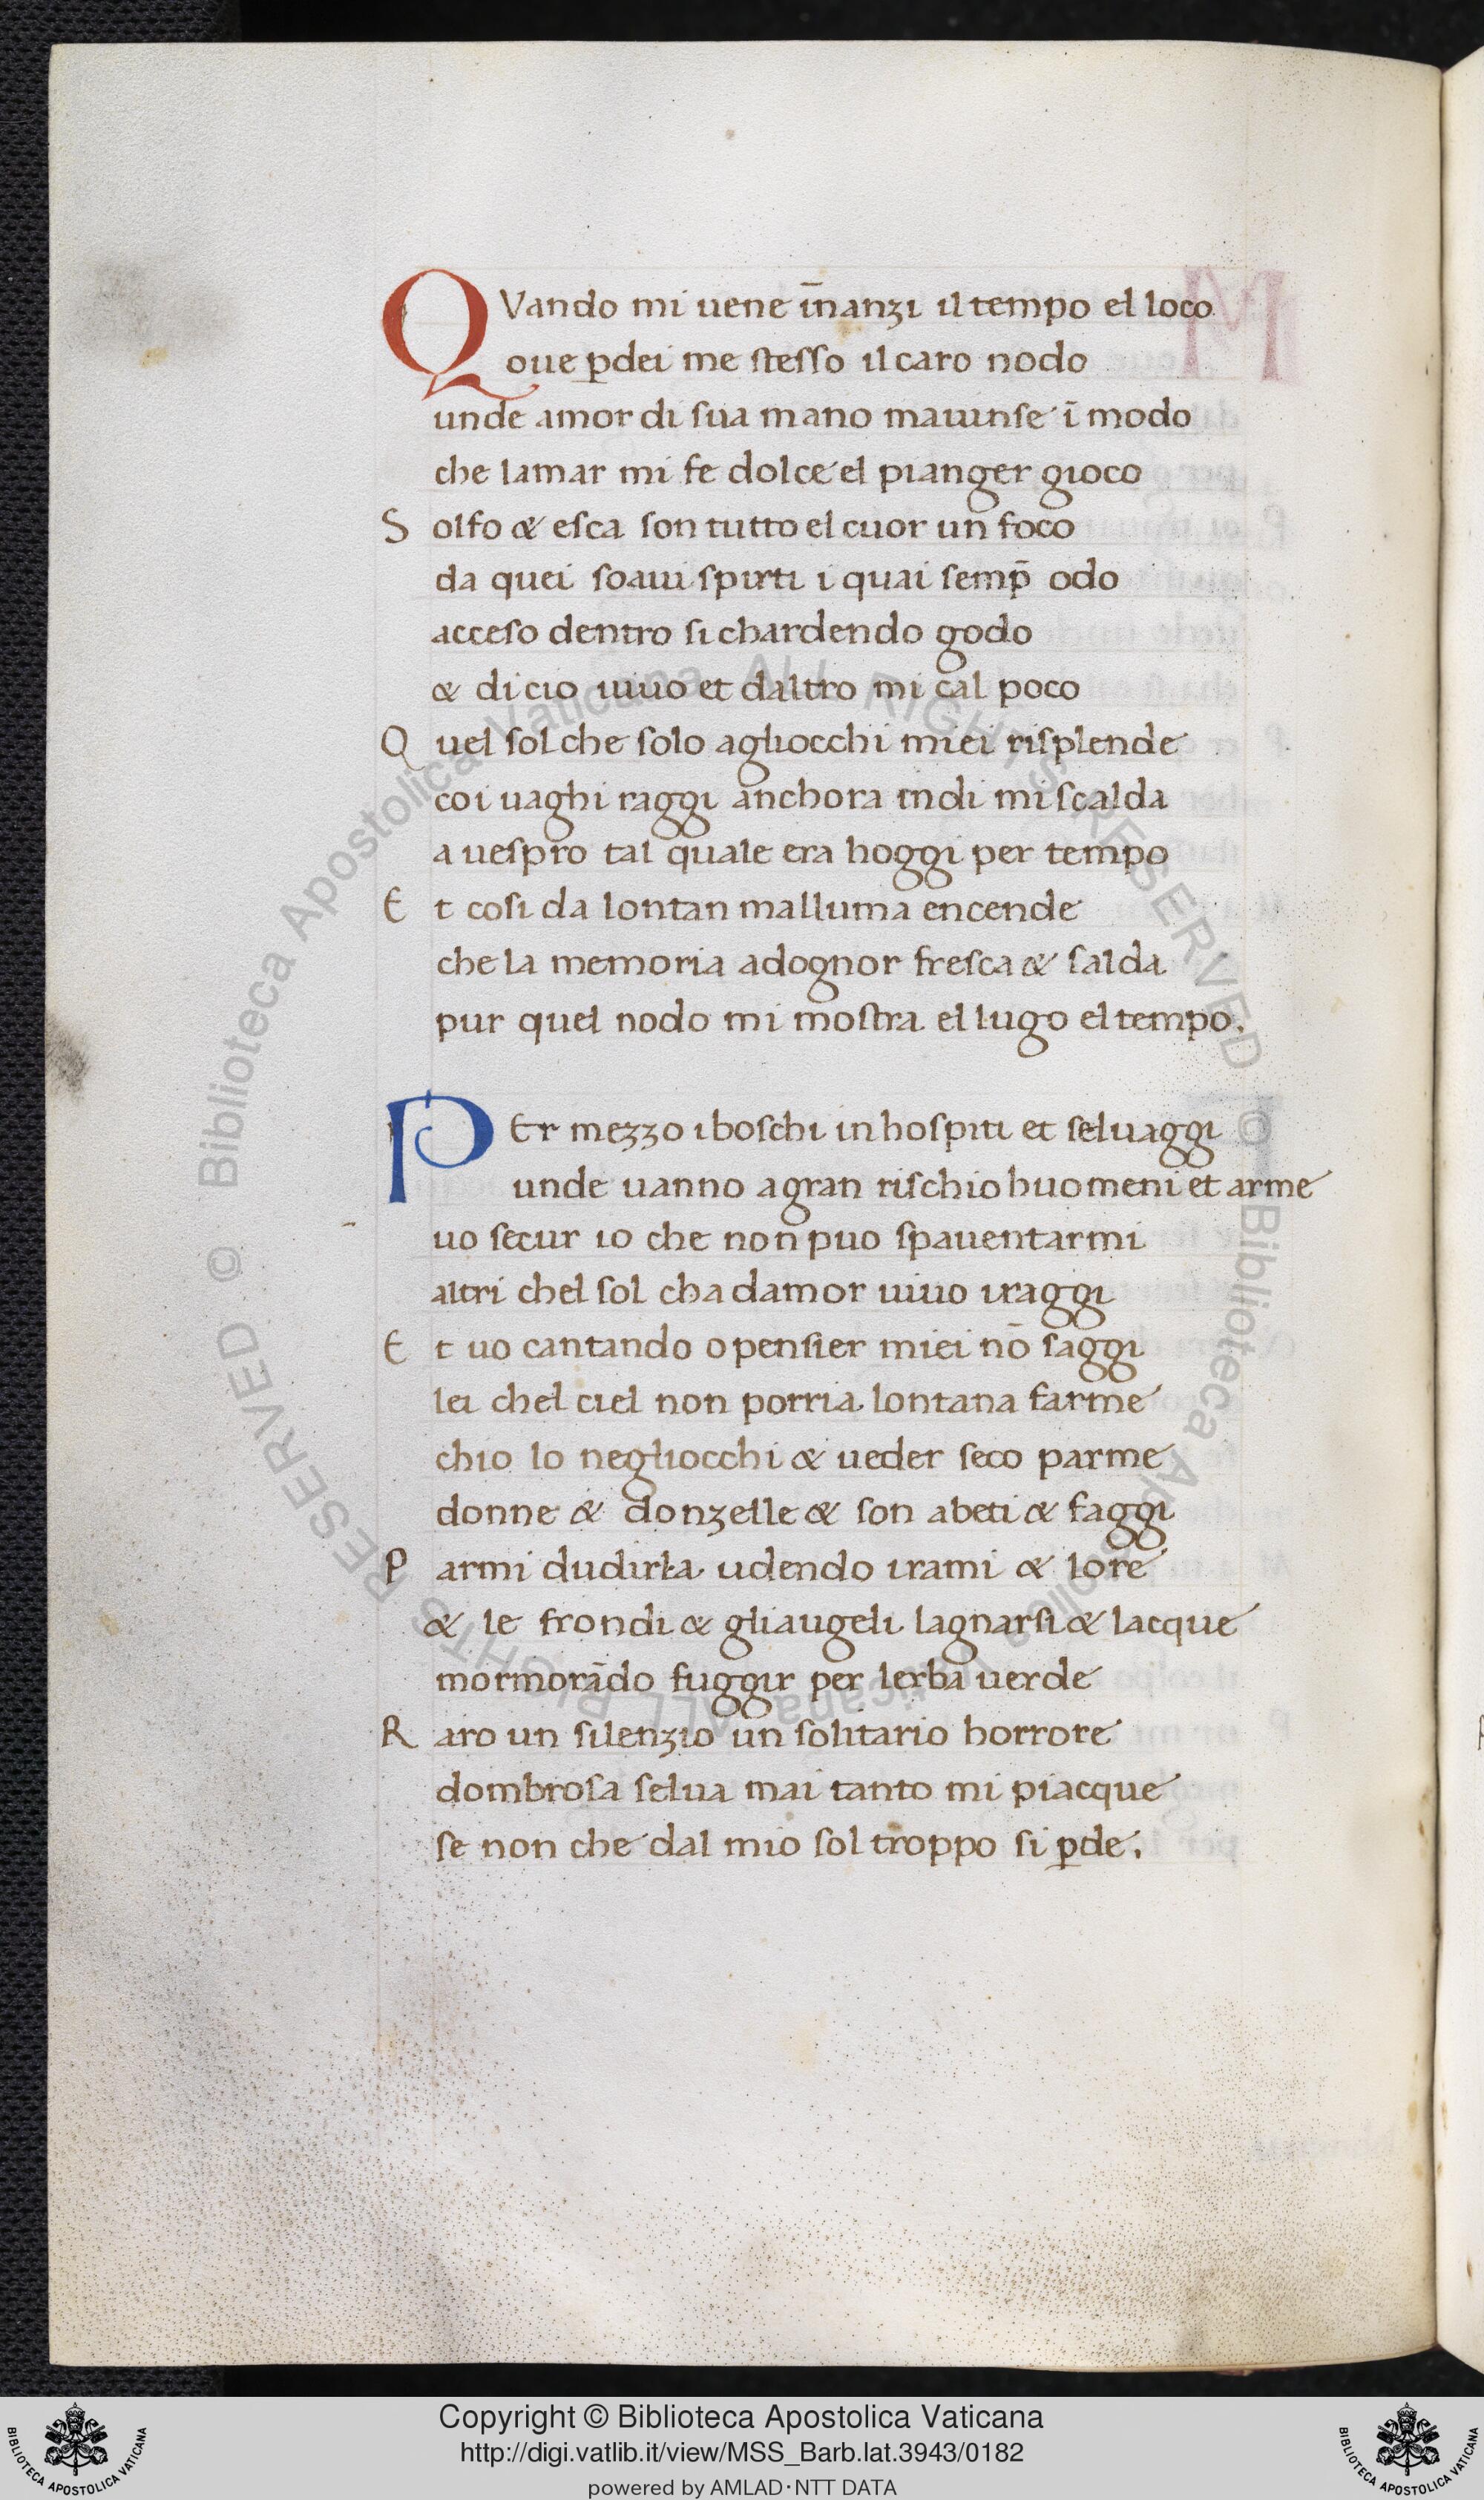 QVando mi uene īnanzi il tempo el loco
oue ꝑdei me stesso il caro nodo
unde amor di sua mano mauinse ī modo
che lamar mi fe dolce el pianger gioco
S olfo & esca son tutto el cuor un foco
da quei soaui spirti i quai semp̄ odo
acceso dentro si chardendo godo
& di cio uiuo et daltro mi cal poco
Q uel sol che solo agliocchi miei risplende
coi uaghi raggi anchora indi mi scalda
a uespro tal quale era hoggi per tempo
E t cosi da lontan malluma encende
che la memoria adognor fresca & salda
pur quel nodo mi mostra el lugo el tempo.
PEr mezzo i boschi inhospiti et seluaggi
unde uanno a gran rischio huomeni et arme
uo secur io che non puo spauentarmi
altri chel sol cha damor uiuo i raggi
E t uo cantando o pensier miei nō saggi
lei chel ciel non porria lontana farme
chio lo negliocchi & ueder seco parme
donne & donzelle & son abeti & faggi
P armi dudirla udendo i rami & lore
& le frondi & gliaugeli lagnarsi & lacque
mormorādo fuggir per lerba uerde
R aro un silenzio un solitario horrore
dombrosa selua mai tanto mi piacque
se non che dal mio sol troppo si ꝑde.
© Biblioteca Apostolica Vaticana ALL RIGHTS RESERVED © Biblioteca Apostolica Vaticana ALL RIGHTS RESERVED
Copyright © Biblioteca Apostolica Vaticana
http://digi.vatlib.it/view/MSS_Barb.lat.3943/0182
powered by AMLAD·NTT DATA
BIBLIOTECA APOSTOLICA VATICANA
BIBLIOTECA APOSTOLICA VATICANA